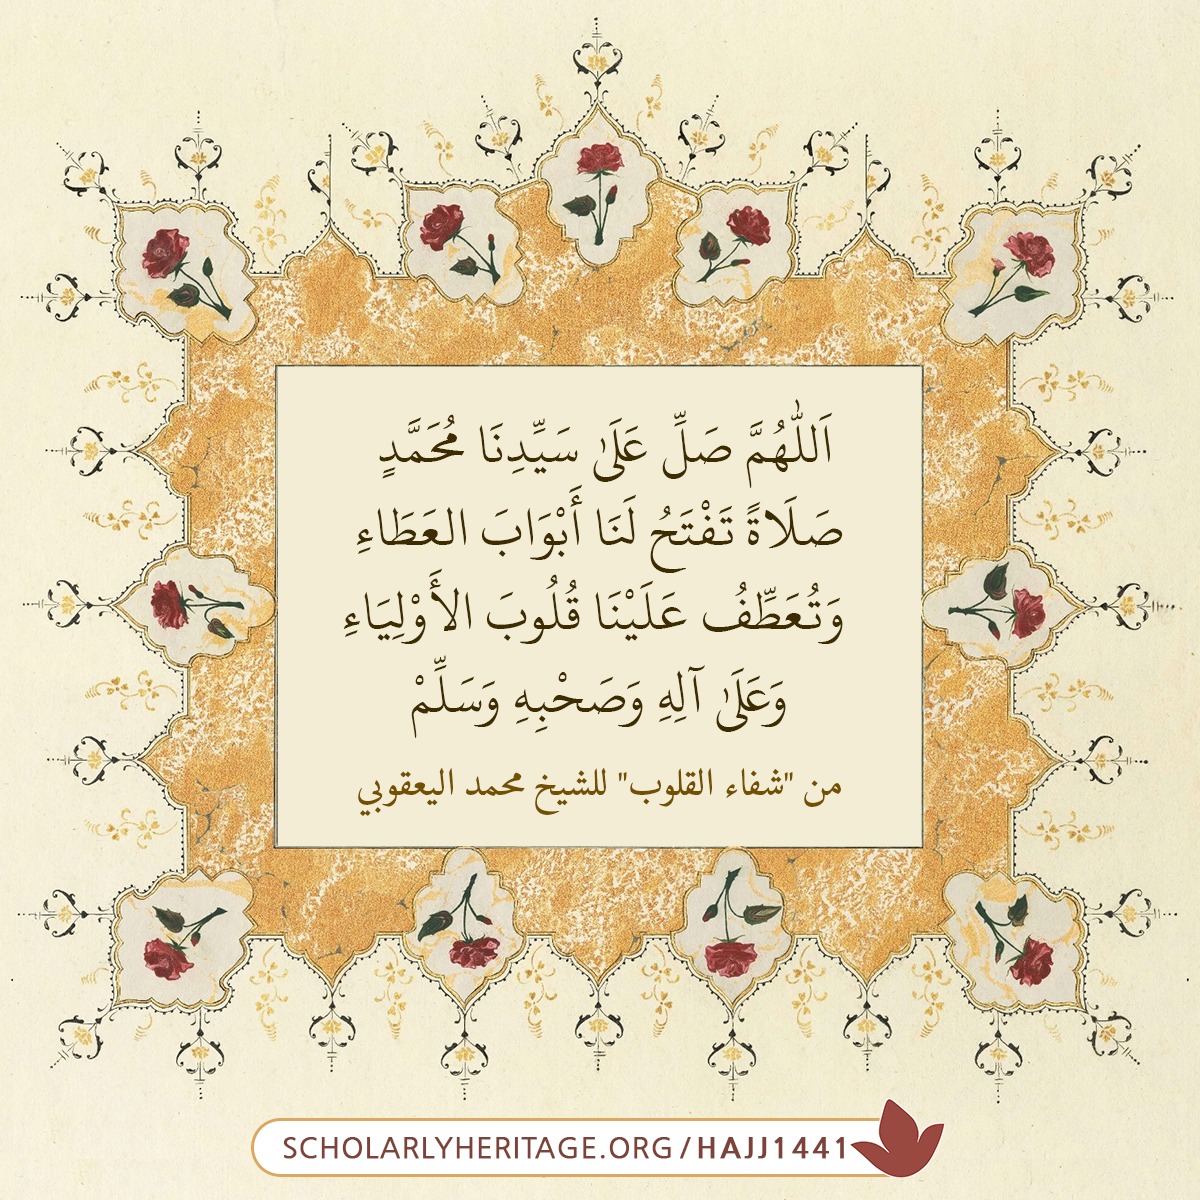 اَللّٰهُمَّ صَلِّ عَلَىٰ سَيِّدِنَا مُحَمَّدٍ
صَلَاةً تَفْتَحُ لَنَا أَبْوَابَ العَطَاءِ
وَتُعَطِّفُ عَلَيْنَا قُلُوبَ الأَوْلِيَاءِ
وَعَلَىٰ آلِهِ وَصَحْبِهِ وَسَلِّمْ
من "شفاء القلوب" للشيخ محمد اليعقوبي
SCHOLARLYHERITAGE.ORG/HAJJ1441